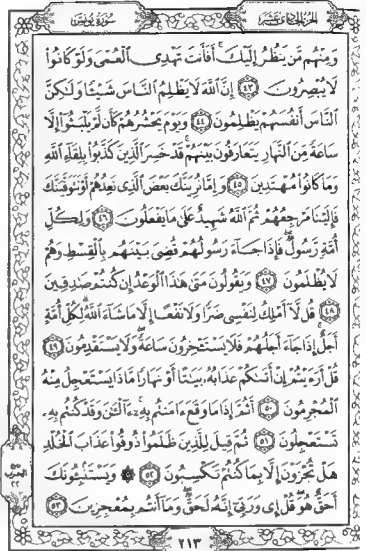 الجزء الحادي عشر
سورة يونس
وَمِنْهُم مَّن يَنظُرُ إِلَيْكَ أَفَأَنتَ تَهْدِى ٱلْعُمْىَ وَلَوْ كَانُوا۟
لَا يُبْصِرُونَ ٤٣ إِنَّ ٱللَّهَ لَا يَظْلِمُ ٱلنَّاسَ شَيْـًٔا وَلَٰكِنَّ
ٱلنَّاسَ أَنفُسَهُمْ يَظْلِمُونَ ٤٤ وَيَوْمَ يَحْشُرُهُمْ كَأَن لَّمْ يَلْبَثُوٓا۟ إِلَّا
سَاعَةً مِّنَ ٱلنَّهَارِ يَتَعَارَفُونَ بَيْنَهُمْ قَدْ خَسِرَ ٱلَّذِينَ كَذَّبُوا۟ بِلِقَآءِ ٱللَّهِ
وَمَا كَانُوا۟ مُهْتَدِينَ ٤٥ وَإِمَّا نُرِيَنَّكَ بَعْضَ ٱلَّذِى نَعِدُهُمْ أَوْ نَتَوَفَّيَنَّكَ
فَإِلَيْنَا مَرْجِعُهُمْ ثُمَّ ٱللَّهُ شَهِيدٌ عَلَىٰ مَا يَفْعَلُونَ ٤٦ وَلِكُلِّ
أُمَّةٍ رَّسُولٌ فَإِذَا جَآءَ رَسُولُهُمْ قُضِىَ بَيْنَهُم بِٱلْقِسْطِ وَهُمْ
لَا يُظْلَمُونَ ٤٧ وَيَقُولُونَ مَتَىٰ هَٰذَا ٱلْوَعْدُ إِن كُنتُمْ صَٰدِقِينَ
٤٨ قُل لَّآ أَمْلِكُ لِنَفْسِى ضَرًّا وَلَا نَفْعًا إِلَّا مَا شَآءَ ٱللَّهُ لِكُلِّ أُمَّةٍ
أَجَلٌ إِذَا جَآءَ أَجَلُهُمْ فَلَا يَسْتَـْٔخِرُونَ سَاعَةً وَلَا يَسْتَقْدِمُونَ ٤٩
قُلْ أَرَءَيْتُمْ إِنْ أَتَىٰكُمْ عَذَابُهُۥ بَيَٰتًا أَوْ نَهَارًا مَّاذَا يَسْتَعْجِلُ مِنْهُ
ٱلْمُجْرِمُونَ ٥٠ أَثُمَّ إِذَا مَا وَقَعَ ءَامَنتُم بِهِۦٓ ءَآلْـَٰٔنَ وَقَدْ كُنتُم بِهِۦ
تَسْتَعْجِلُونَ ٥١ ثُمَّ قِيلَ لِلَّذِينَ ظَلَمُوا۟ ذُوقُوا۟ عَذَابَ ٱلْخُلْدِ
هَلْ تُجْزَوْنَ إِلَّا بِمَا كُنتُمْ تَكْسِبُونَ ٥٢ ۞ وَيَسْتَنۢبِـُٔونَكَ
أَحَقٌّ هُوَ قُلْ إِى وَرَبِّىٓ إِنَّهُۥ لَحَقٌّ وَمَآ أَنتُم بِمُعْجِزِينَ ٥٣
الحزب
٢٢
٢١٣